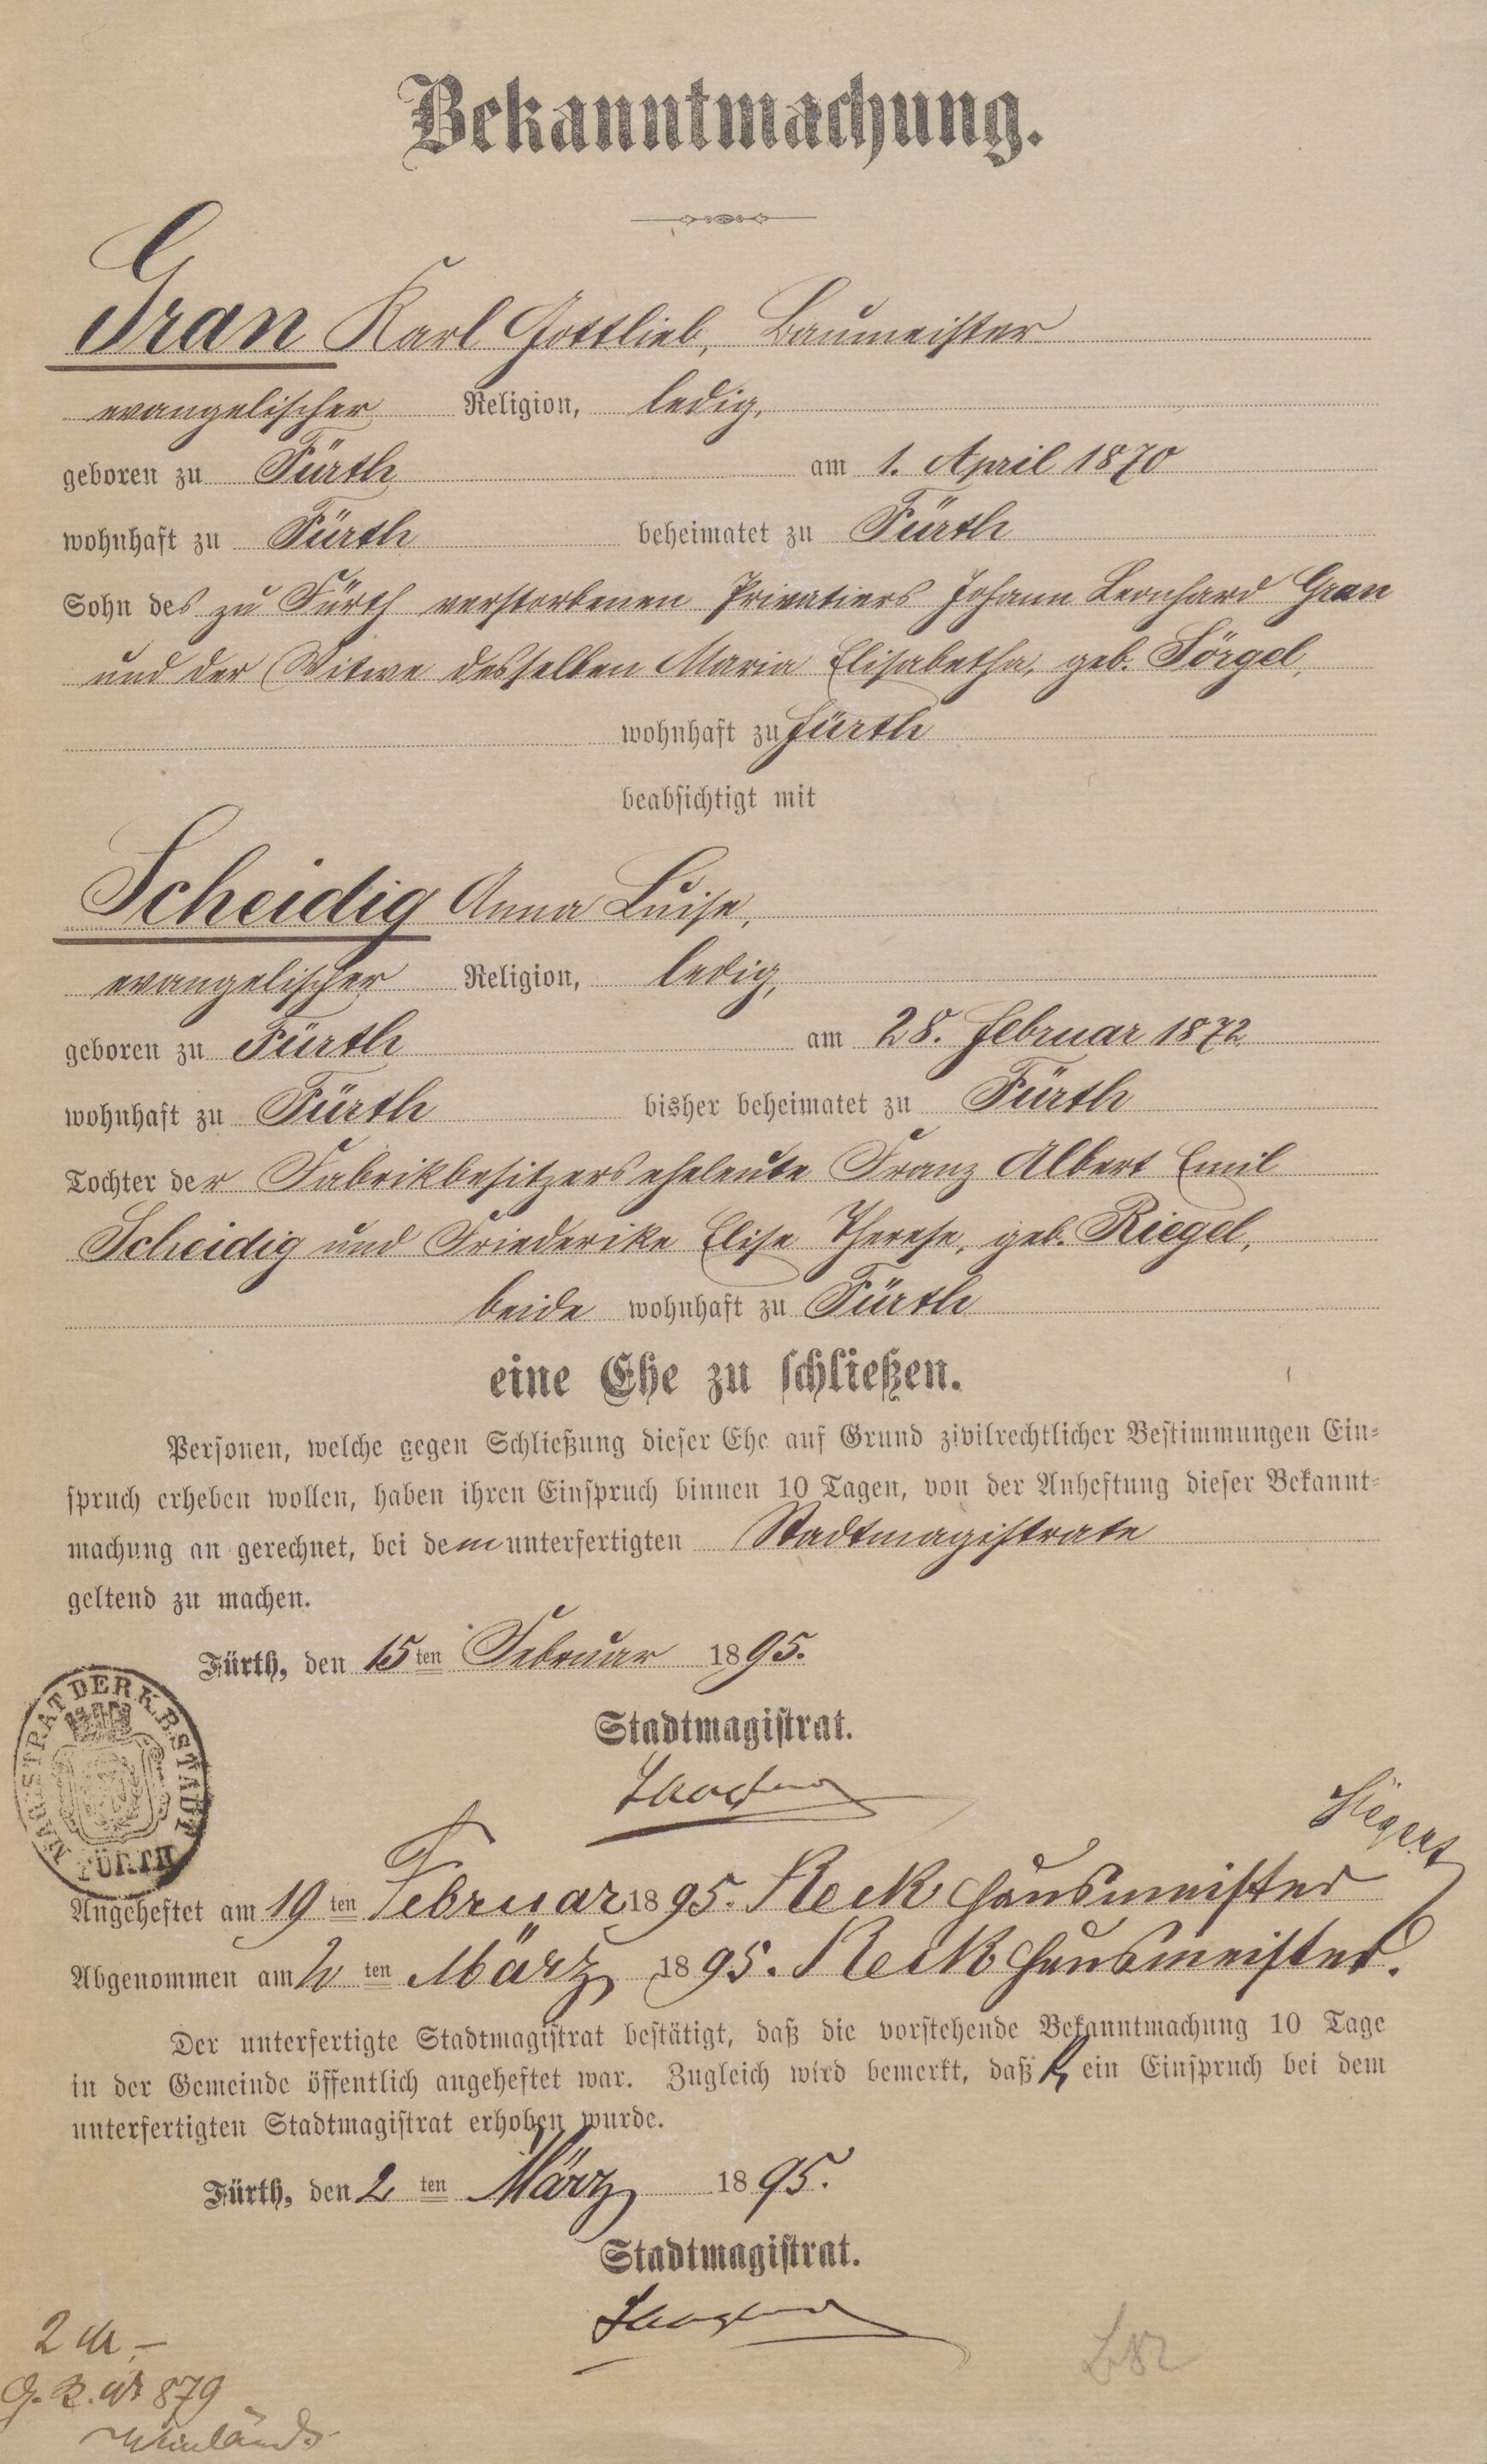 Bekanntmachung.
Gran Karl Gottlieb, Baumeister
evangelischer Religion, ledig,
geboren zu Fürth am 1. April 1870
wohnhaft zu Fürth beheimatet zu Fürth
Sohn des zu Fürth verstorbenen Privatiers Johann Leonhard Gran
und der Witwe desselben Maria Elisabetha, geb. Sörgel,
wohnhaft zu Fürth
beabsichtigt mit
Scheidig Anna Luise,
evangelischer Religion, ledig,
geboren zu Fürth am 28. Februar 1872
wohnhaft zu Fürth bisher beheimatet zu Fürth
Tochter der Fabrikbesitzerseheleute Franz Albert Emil
Scheidig und Friederike Elise Therese, geb. Riegel,
beide wohnhaft zu Fürth
eine Ehe zu schließen.
Personen, welche gegen Schließung dieser Ehe auf Grund zivilrechtlicher Bestimmungen Ein-
spruch erheben wollen, haben ihren Einspruch binnen 10 Tagen, von der Anheftung dieser Bekannt-
machung an gerechnet, bei dem unterfertigten Stadtmagistrate
geltend zu machen.
Fürth, den 15ten Februar 1895.
MAGISTRAT DER K.B. STADT FÜRTH
Stadtmagistrat.
Angeheftet am 19ten Februar 1895. Keck Hausmeister
Abgenommen am 2ten März 1895. Keck Hausmeister.
Der unterfertigte Stadtmagistrat bestätigt, daß die vorstehende Bekanntmachung 10 Tage
in der Gemeinde öffentlich angeheftet war. Zugleich wird bemerkt, daß kein Einspruch bei dem
unterfertigten Stadtmagistrat erhoben wurde.
Fürth, den 2ten März 1895.
Stadtmagistrat.
2 M.–
G.R. Nr 879